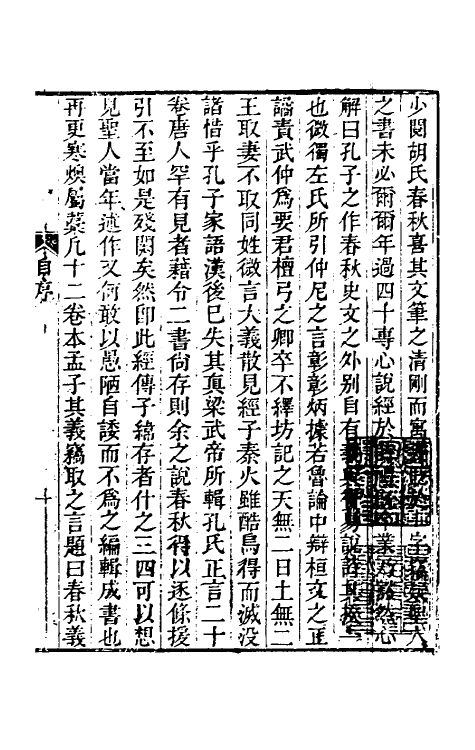 少閱胡氏春秋喜其文筆之清剛而寓
之書未必爾爾年過四十專心說經於業然心
解曰孔子之作春秋史文之外別自有
也微獨左氏所引仲尼之言彰彰炳據若魯論中辯桓文之正
譎責武仲為要君檀弓之卿卒不繹坊記之天無二日土無二
王取妻不取同姓微言大義散見經子秦火雖酷烏得而滅沒
諸惜乎孔子家語漢後已失其真梁武帝所輯孔氏正言二十
卷唐人罕有見者藉令二書尙存則余之說春秋得以逐條援
引不至如是殘闕矣然卽此經傳子緯存者什之三四可以想
見聖人當年述作又何敢以愚陋自諉而不為之編輯成書也
再更寒燠屬藁凡十二卷本孟子其義竊取之言題曰春秋義
自序